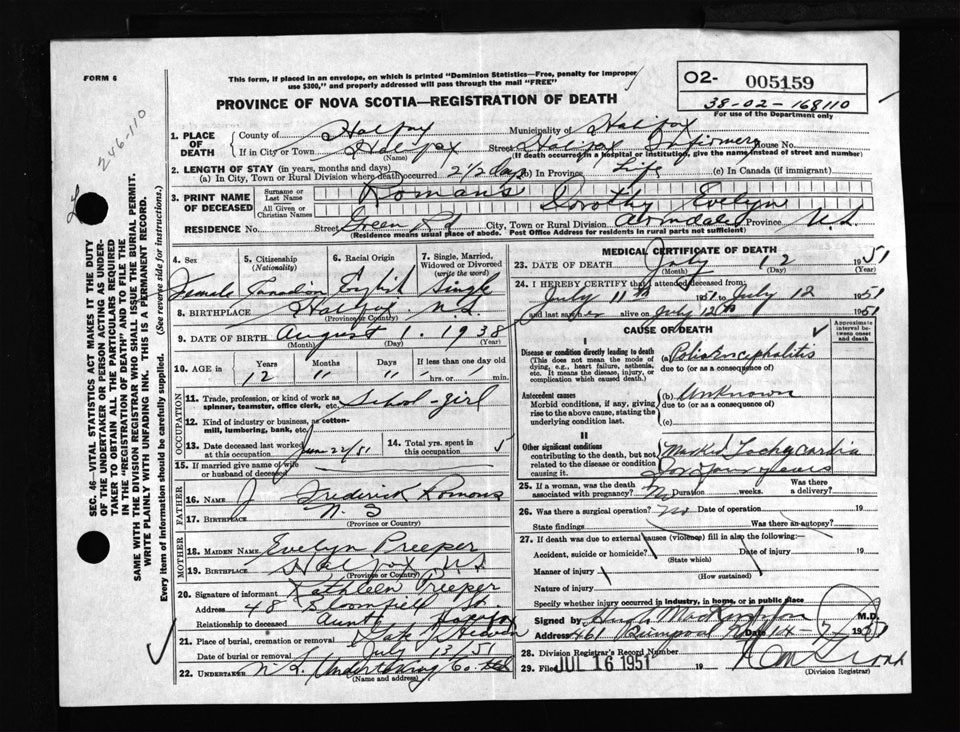 FORM 6
This form, if placed in an envelope, on which is printed "Dominion Statistics—Free, penalty for improper
use $300," and properly addressed will pass through the mail "FREE"
O2- 005159
38-02-168110
For use of the Department only
PROVINCE OF NOVA SCOTIA—REGISTRATION OF DEATH
246-110
SEC. 46—VITAL STATISTICS ACT MAKES IT THE DUTY
OF THE UNDERTAKER OR PERSON ACTING AS UNDER-
TAKER TO OBTAIN ALL THE PARTICULARS REQUIRED
IN THE "REGISTRATION OF DEATH" AND TO FILE THE
SAME WITH THE DIVISION REGISTRAR WHO SHALL ISSUE THE BURIAL PERMIT.
WRITE PLAINLY WITH UNFADING INK. THIS IS A PERMANENT RECORD.
Every item of information should be carefully supplied. (See reverse side for instructions.)
1. PLACE OF DEATH
County of Halifax Municipality of Halifax
If in City or Town Halifax Street Halifax Infirmary House No.
(Name) (If death occurred in a hospital or institution, give the name instead of street and number)
2. LENGTH OF STAY (in years, months and days)
(a) In City, Town or Rural Division where death occurred 2 1/2 days (b) In Province Life (c) In Canada (if immigrant)
3. PRINT NAME OF DECEASED
Surname or Last Name Romans
All Given or Christian Names Dorothy Evelyn
RESIDENCE No. Street Green Rd City, Town or Rural Division Armdale Province N.S.
(Residence means usual place of abode. Post Office Address for residents in rural parts not sufficient)
4. Sex
Female
5. Citizenship
(Nationality)
Canadian
6. Racial Origin
English
7. Single, Married,
Widowed or Divorced
(write the word)
Single
8. BIRTHPLACE Halifax N.S.
(Province or Country)
9. DATE OF BIRTH August 1 1938
(Month) (Day) (Year)
10. AGE in
Years Months Days If less than one day old
12 " " hrs. or min.
OCCUPATION
11. Trade, profession, or kind of work as
spinner, teamster, office clerk, etc. School-girl
12. Kind of industry or business, as cotton-
mill, lumbering, bank, etc.
13. Date deceased last worked
at this occupation June 22/51
14. Total yrs. spent in
this occupation 5
15. If married give name of wife
or husband of deceased
FATHER
16. Name J Frederick Romans
17. Birthplace N.S
(Province or Country)
MOTHER
18. MAIDEN NAME Evelyn Preeper
19. BIRTHPLACE Halifax N.S.
(Province or Country)
20. Signature of informant Kathleen Preeper
Address 48 Bloomfield St
Relationship to deceased aunt Halifax
21. Place of burial, cremation or removal
Date of burial or removal July 13/51
22. UNDERTAKER N.S. Undertaking Co. Ltd
(Name and address)
MEDICAL CERTIFICATE OF DEATH
23. DATE OF DEATH July 12 1951
(Month) (Day)
24. I HEREBY CERTIFY that I attended deceased from:
July 11th 1951 to July 12 1951
and last saw her alive on July 12th 1951
CAUSE OF DEATH
Approximate
interval be-
tween onset
and death
I
Disease or condition directly leading to death
(This does not mean the mode of
dying, e.g., heart failure, asthenia,
etc. It means the disease, injury, or
complication which caused death.)
(a) Polioencephalitis
due to (or as a consequence of)
Antecedent causes
Morbid conditions, if any, giving
rise to the above cause, stating the
underlying condition last.
(b) Unknown
due to (or as a consequence of)
(c)
II
Other significant conditions
contributing to the death, but not
related to the disease or condition
causing it.
Marked Tachycardia
for four years
25. If a woman, was the death
associated with pregnancy? No Duration weeks. Was there
a delivery?
26. Was there a surgical operation? No Date of operation 19
State findings Was there an autopsy?
27. If death was due to external causes (violence) fill in also the following:—
Accident, suicide or homicide? Date of injury 19
(State which)
Manner of injury
(How sustained)
Nature of injury
Specify whether injury occurred in industry, in home, or in public place
Signed by Hugh MacKinnon M.D.
Address 461 Date 14-7 1951
28. Division Registrar's Record Number
29. Filed JUL 16 1951 19
(Division Registrar)